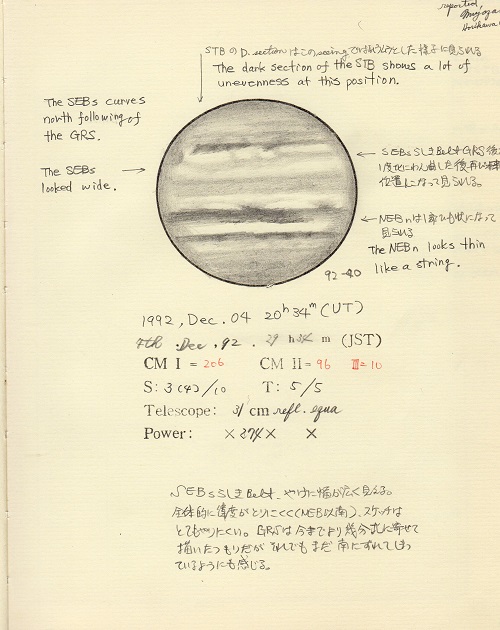 reported,
STBのD.sectionはこのseeingで
The dark section of the STB shows a lot of
unevenness at this position.
The SEBs curves
north following of
the GRS.
The SEBs
looked wide.
SEBsらしきBelt GRS後
位置になって見られる。
NEBnは1条ひも状になって
見られる
The NEBn looks thin
like a string.
92-40
1992, Dec. 04 20h 34m (UT)
4th .Dec .92. 29 h 34 m (JST)
CM I = 206 CM II = 96 III=10
S: 3(4)/10 T: 5/5
Telescope: 31 cm refl. equa
Power: ×274× ×
SEBsらしきBelt、やけに幅が広く見える。
全体的に濃度がとりにくく(NEB以南)、スケッチは
とてもやりにくい。GRSは今までより幾分北に寄せて
描いたつもりだが それでもまだ 南にずれてしまっ
ているようにも感じる。